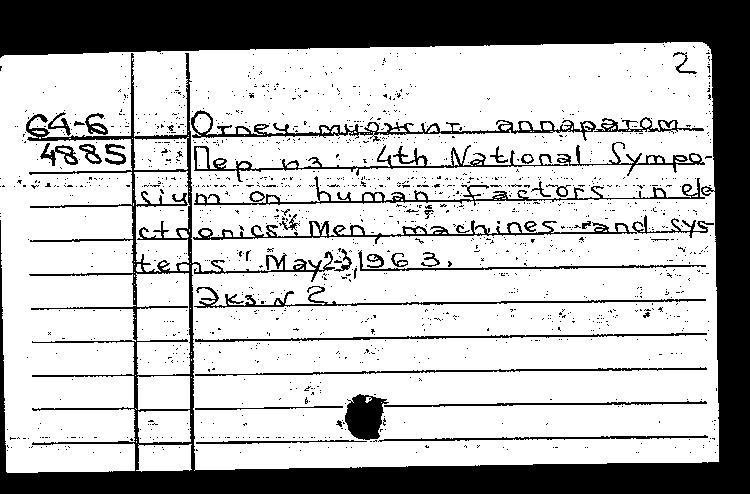 2
64-6 Отпеч. множит. аппаратом.
4885 Пер из: „4th National Sympo-
sium on human factors in ele
ctronics". Men, machines and sys-
tems". May 2-3, 1963.
Экз. N 2.